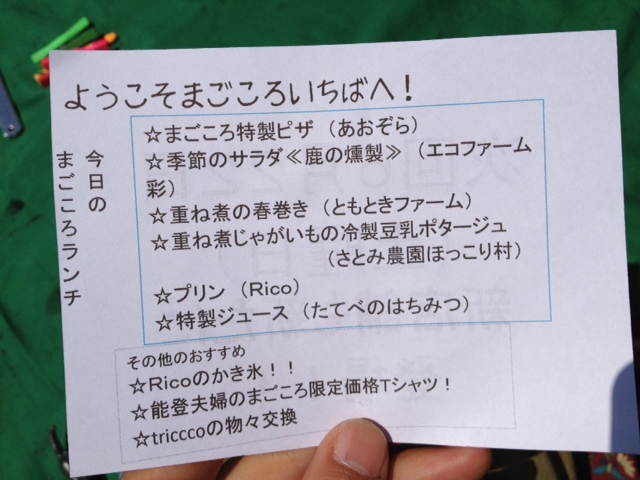 ようこそまごころいちばへ!
今日の
まごころランチ
☆まごころ特製ピザ（あおぞら）
☆季節のサラダ≪鹿の燻製≫（エコファーム
彩）
☆重ね煮の春巻き（ともときファーム）
☆重ね煮じゃがいもの冷製豆乳ポタージュ
（さとみ農園ほっこり村）
☆プリン（Rico）
☆特製ジュース（たてべのはちみつ）
その他のおすすめ
☆Ricoのかき氷！！
☆能登夫婦のまごころ限定価格Tシャツ！
☆tricccoの物々交換